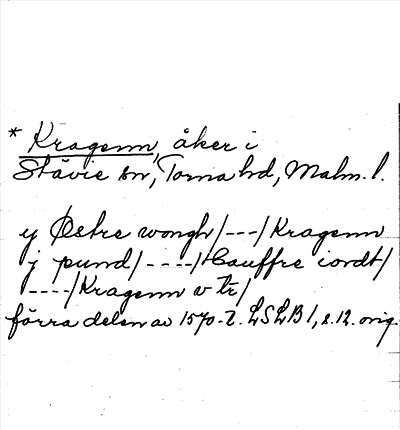 * Kragenn, åker i
Stävie sn, Torna hd, Malm. l.
y Østre wongh/---/Kragenn
j pund/----/Gauffre iordt/
----/Kragenn v tr/
förra delen av 1570-t. LSLB 1, s. 12. orig.